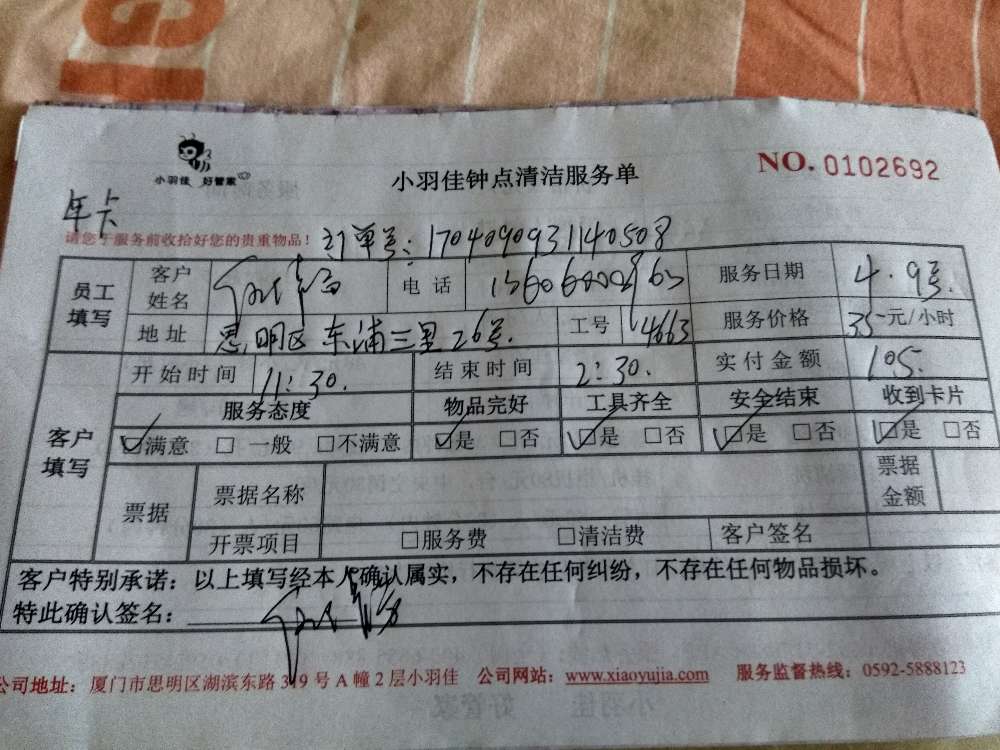 小羽佳 好管家
小羽佳钟点清洁服务单
NO. 0102692
年卡
请您于服务前收拾好您的贵重物品！ 订单号：1704090931140508
员工填写 客户姓名 电话 服务日期 4.9号
地址 思明区东浦三里26号. 工号 4663 服务价格 35元/小时
客户填写 开始时间 11:30. 结束时间 2:30. 实付金额 105.
服务态度 物品完好 工具齐全 安全结束 收到卡片
☑满意 □一般 □不满意 ☑是 □否 ☑是 □否 ☑是 □否 ☑是 □否
票据 票据名称 票据金额
开票项目 □服务费 □清洁费 客户签名
客户特别承诺：以上填写经本人确认属实，不存在任何纠纷，不存在任何物品损坏。
特此确认签名：
公司地址：厦门市思明区湖滨东路319号A幢2层小羽佳 公司网站：www.xiaoyujia.com 服务监督热线：0592-5888123